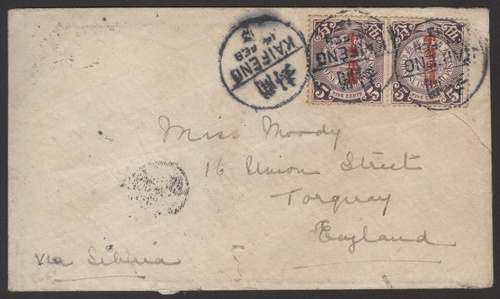 KAIFENG
14 FEB
13
開封
5 FIVE CENTS 5
5 FIVE CENTS 5
KAIFENG
Miss Moody
16 Union Street
Torquay
England
via Siberia